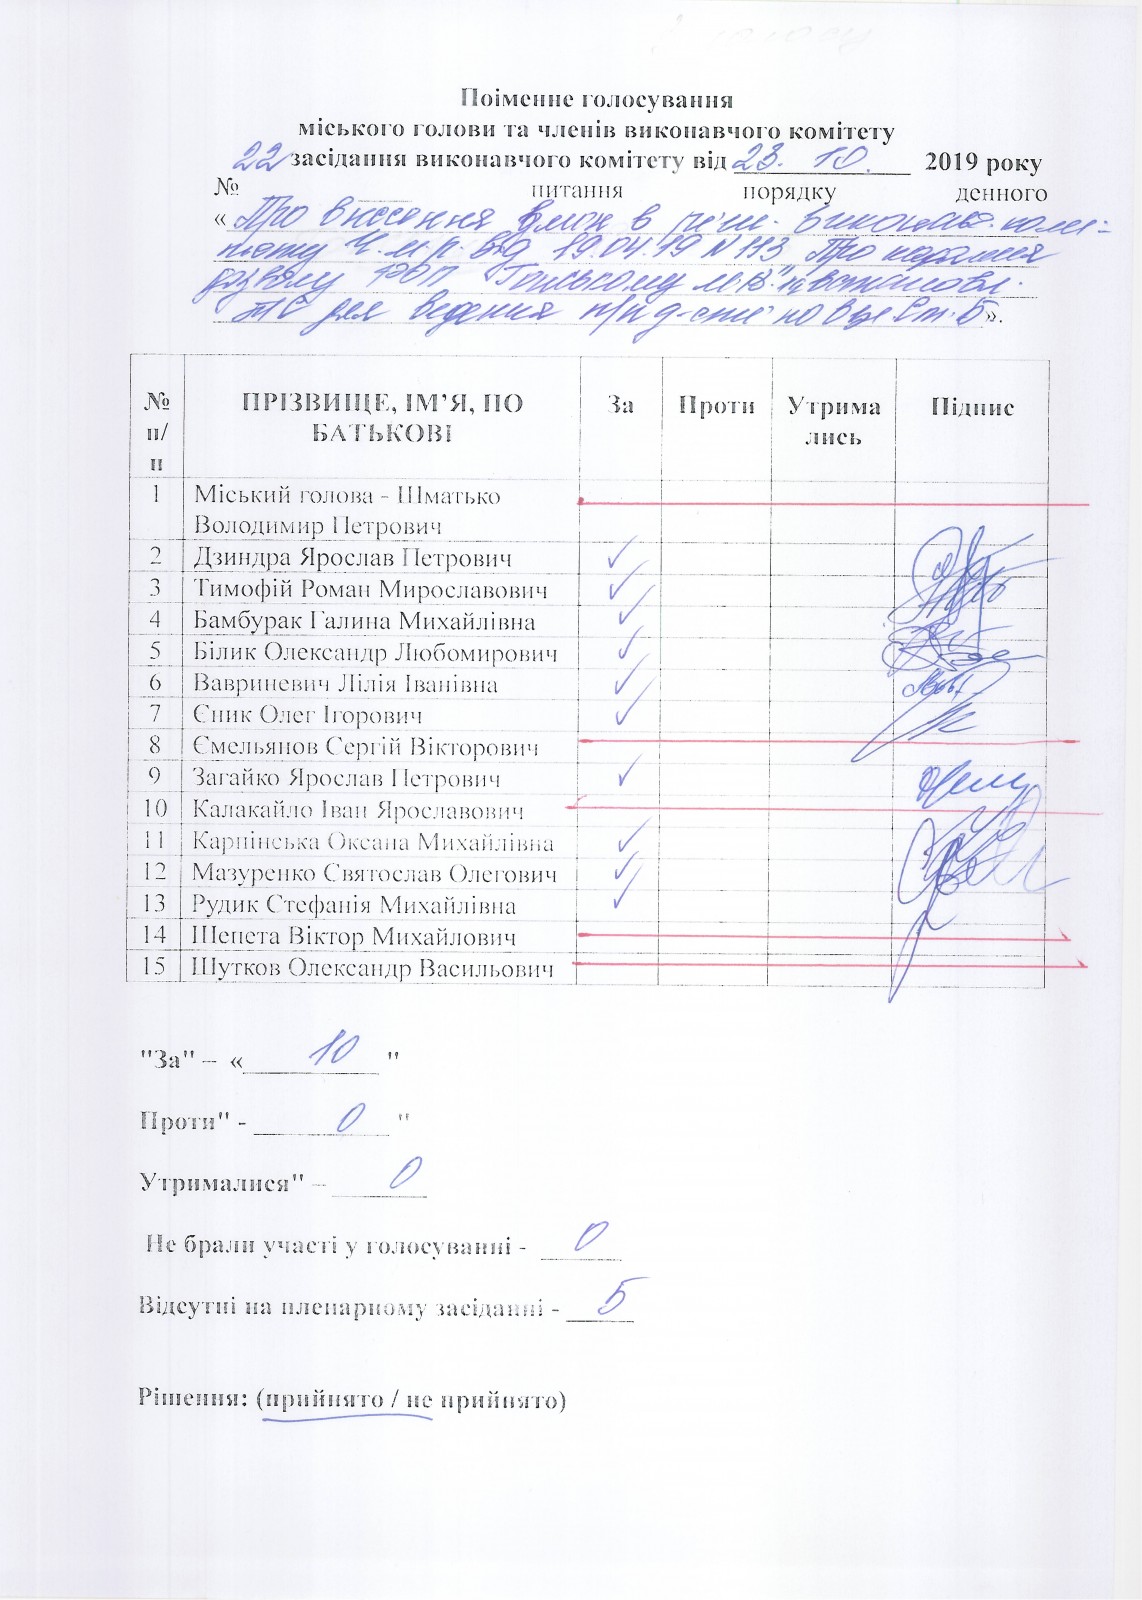 Поіменне голосування
міського голови та членів виконавчого комітету
22 засідання виконавчого комітету від 23. 10. 2019 року
№ питання порядку денного
« Про внесення змін в ріш. виконавч. комі-
тету Ч.м.р. від 19.04.19 N 113 „Про надання
дозволу ФОП
ТС для ведення ».
№ п/п ПРІЗВИЩЕ, ІМ’Я, ПО БАТЬКОВІ За Проти Утрима лись Підпис
1 Міський голова - Шматько
Володимир Петрович
2 Дзиндра Ярослав Петрович ✓
3 Тимофій Роман Мирославович ✓
4 Бамбурак Галина Михайлівна ✓
5 Білик Олександр Любомирович ✓
6 Вавриневич Лілія Іванівна ✓
7 Єник Олег Ігорович ✓
8 Ємельянов Сергій Вікторович
9 Загайко Ярослав Петрович ✓
10 Калакайло Іван Ярославович
11 Карпінська Оксана Михайлівна ✓
12 Мазуренко Святослав Олегович ✓
13 Рудик Стефанія Михайлівна ✓
14 Шепета Віктор Михайлович
15 Шутков Олександр Васильович
"За" – « 10 "
Проти" - 0 "
Утрималися" – 0
Не брали участі у голосуванні - 0
Відсутні на пленарному засіданні - 5
Рішення: (прийнято / не прийнято)